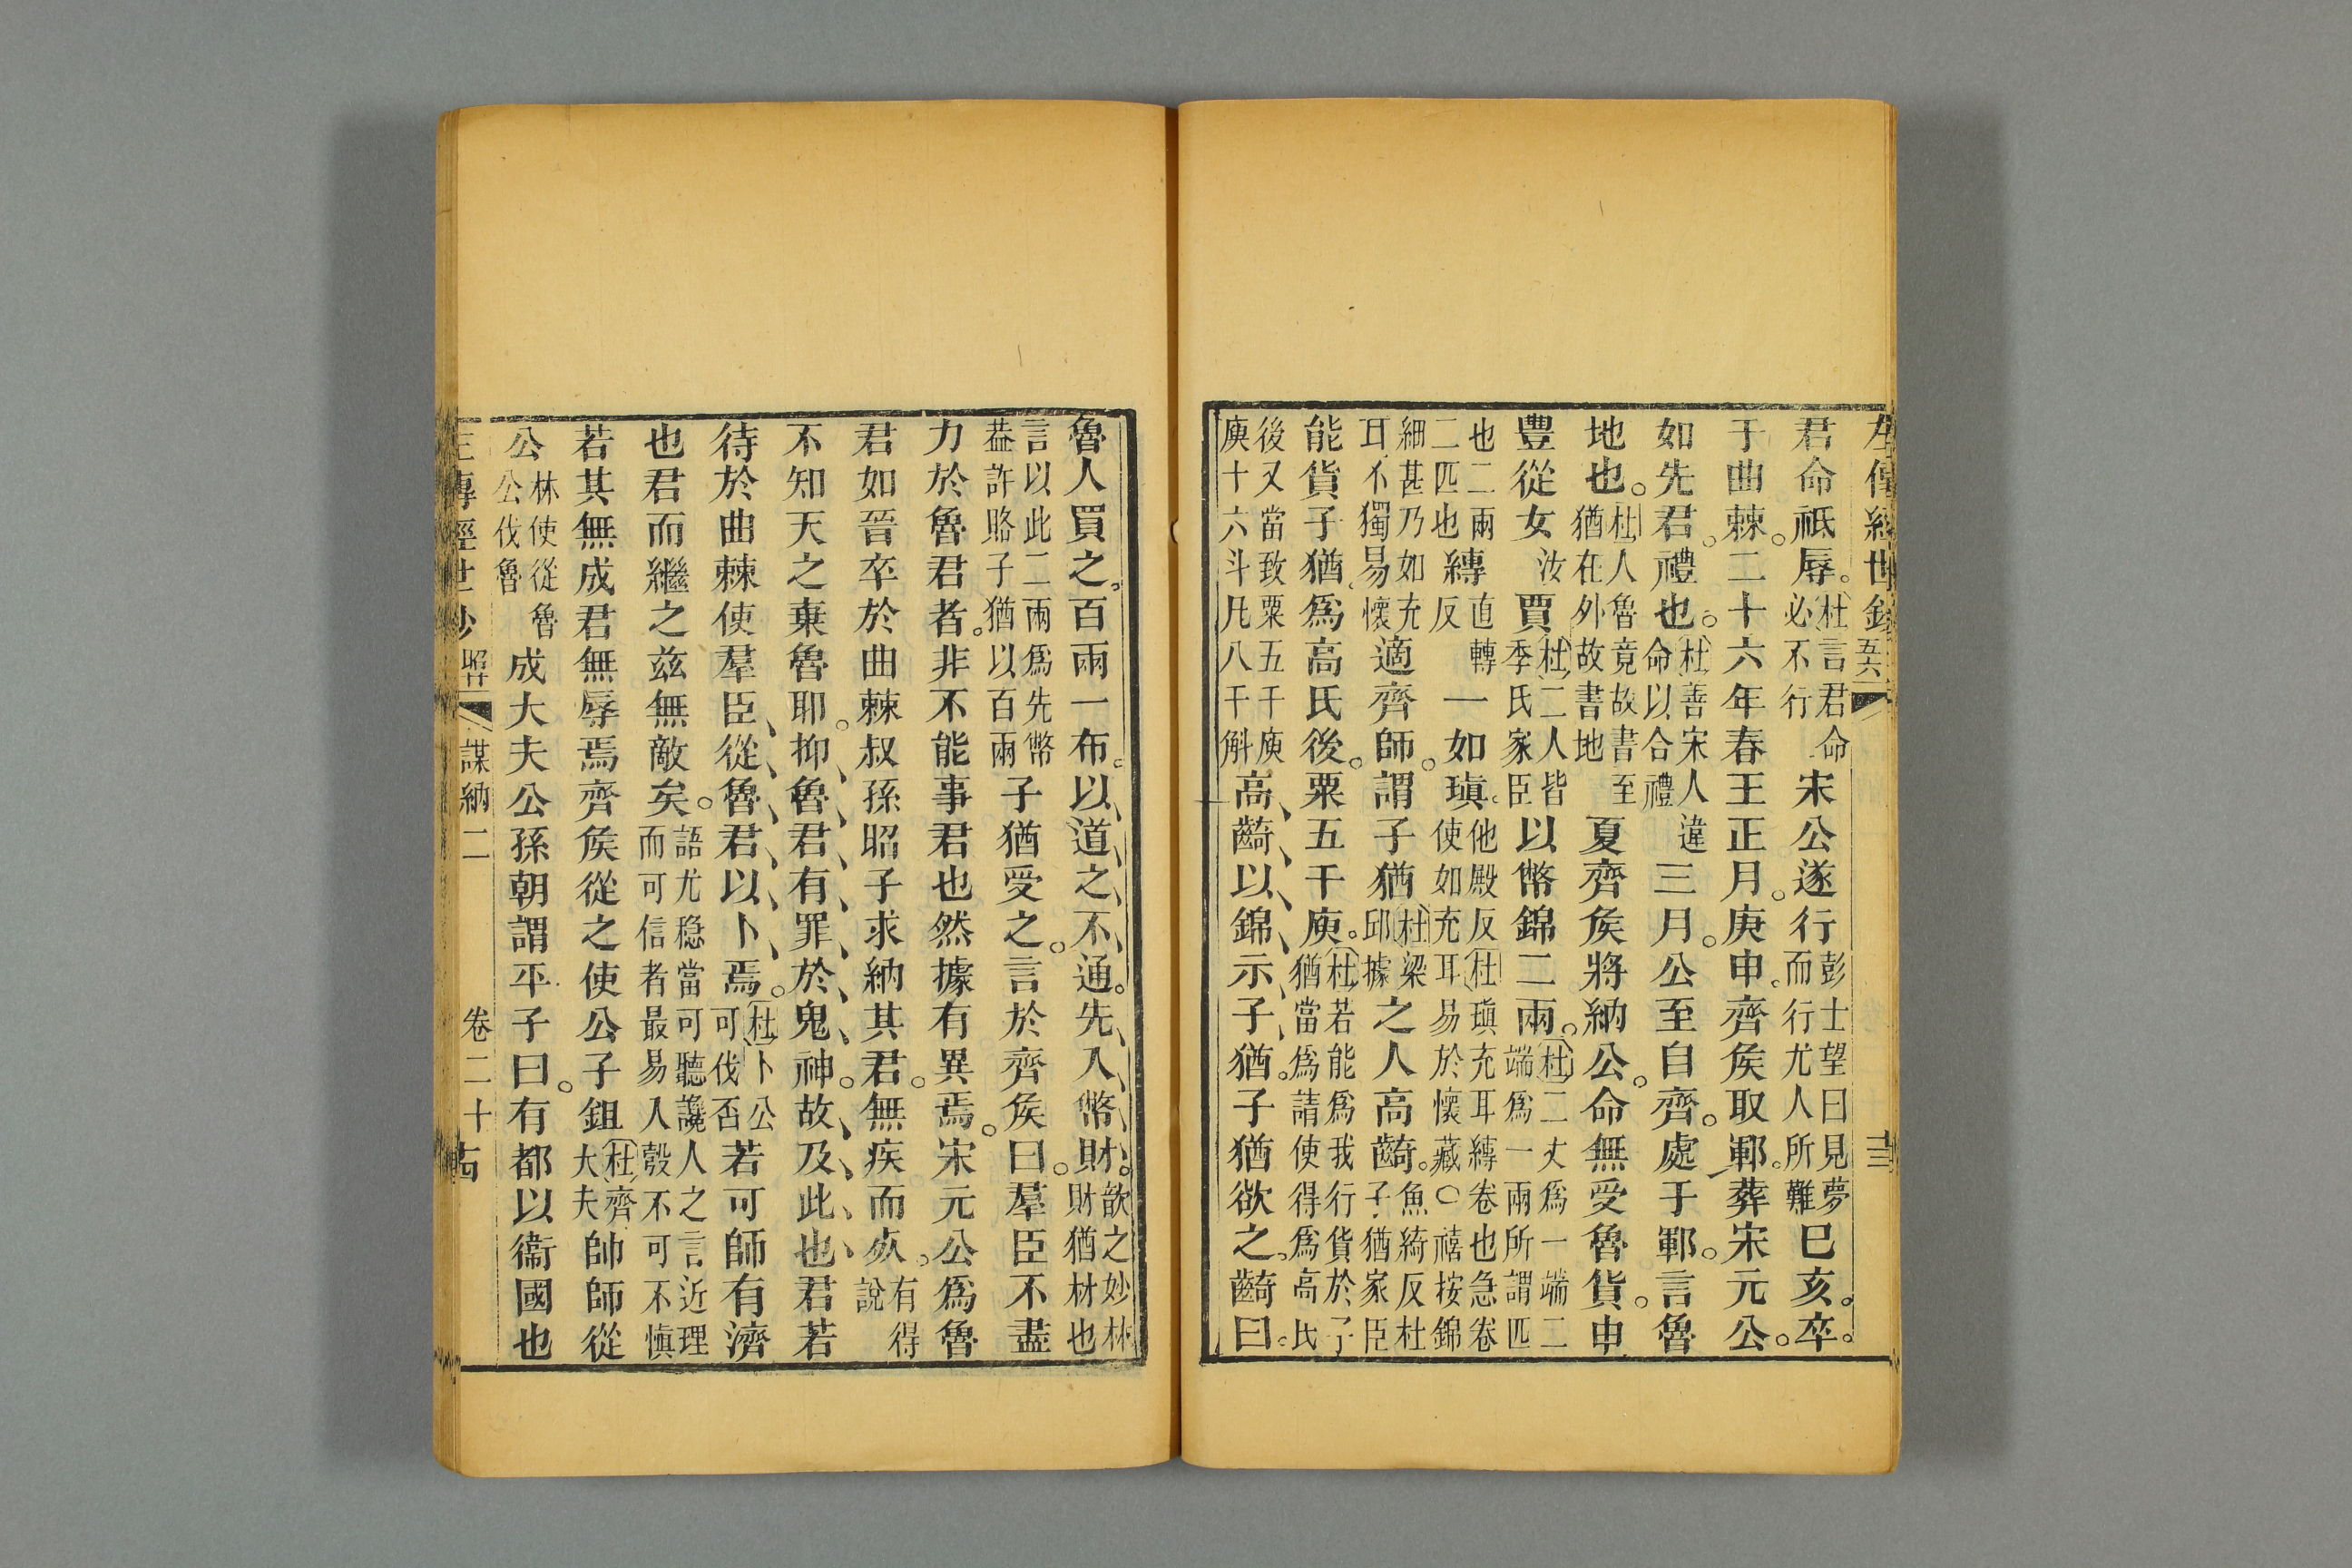 左傳經世鈔 五六 十三
君命祇辱。杜言君命必不行宋公遂行彭士望曰見夢而行尤人所難巳亥。卒。
于曲棘。二十六年春王正月。庚申。齊矦取鄆。葬宋元公。
如先君。禮也。杜善宋人違命以合禮三月。公至自齊。處于鄆。言魯
地也。杜人魯竟故書至猶在外故書地夏齊矦將納公。命無受魯貨。申
豐從女汝賈杜二人皆季氏家臣以幣錦二兩。杜二丈爲一端二端爲一兩所謂匹
也二兩二匹也縳直轉反一如瑱。他殿反杜瑱充耳縳卷也急卷使如充耳易於懷藏○禧按錦
細甚乃如充耳不獨易懷適齊師。謂子猶杜梁邱據之人高齮。魚綺反杜子猶家臣
能貨子猶。爲高氏後。粟五千庾。杜若能爲我行貨於子猶當爲請使得爲高氏
後又當致粟五千庾庾十六斗凡八千斛高齮以錦示子猶。子猶欲之。齮曰。
魯人買之。百兩一布。以道之不通。先入幣財。歆之妙林財猶材也
言以此二兩爲先幣葢許賂子猶以百兩子猶受之。言於齊矦曰。羣臣不盡
力於魯君者。非不能事君也然據有異焉。宋元公爲魯
君如晉卒於曲棘叔孫昭子求納其君。無疾而死。有得說
不知天之棄魯耶。抑魯君有罪於鬼神。故及此也君若
待於曲棘使羣臣從魯君以卜焉。杜卜公可伐否若可師有濟
也君而繼之茲無敵矣。語尤穩當可聽讒人之言近理而可信者最易人彀不可不慎
若其無成君無辱焉齊矦從之使公子鉏杜齊大夫帥師從
公林使從魯公伐魯成大夫公孫朝謂平子曰。有都以衞國也
左傳經世鈔 昭廿 謀納二 卷二十 十四